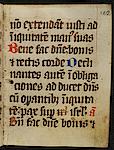 nō extendāt iusti ad
iniquitatē man⁹ suas
Bene fac dn̄e bonis
et rectis corde Decli
nantes autē ī obliga
ciones ad ducet dn̄s
cū opantib⁹ iniquita
tē pax sup isrl̄
Bn̄ fac dn̄e bonis &